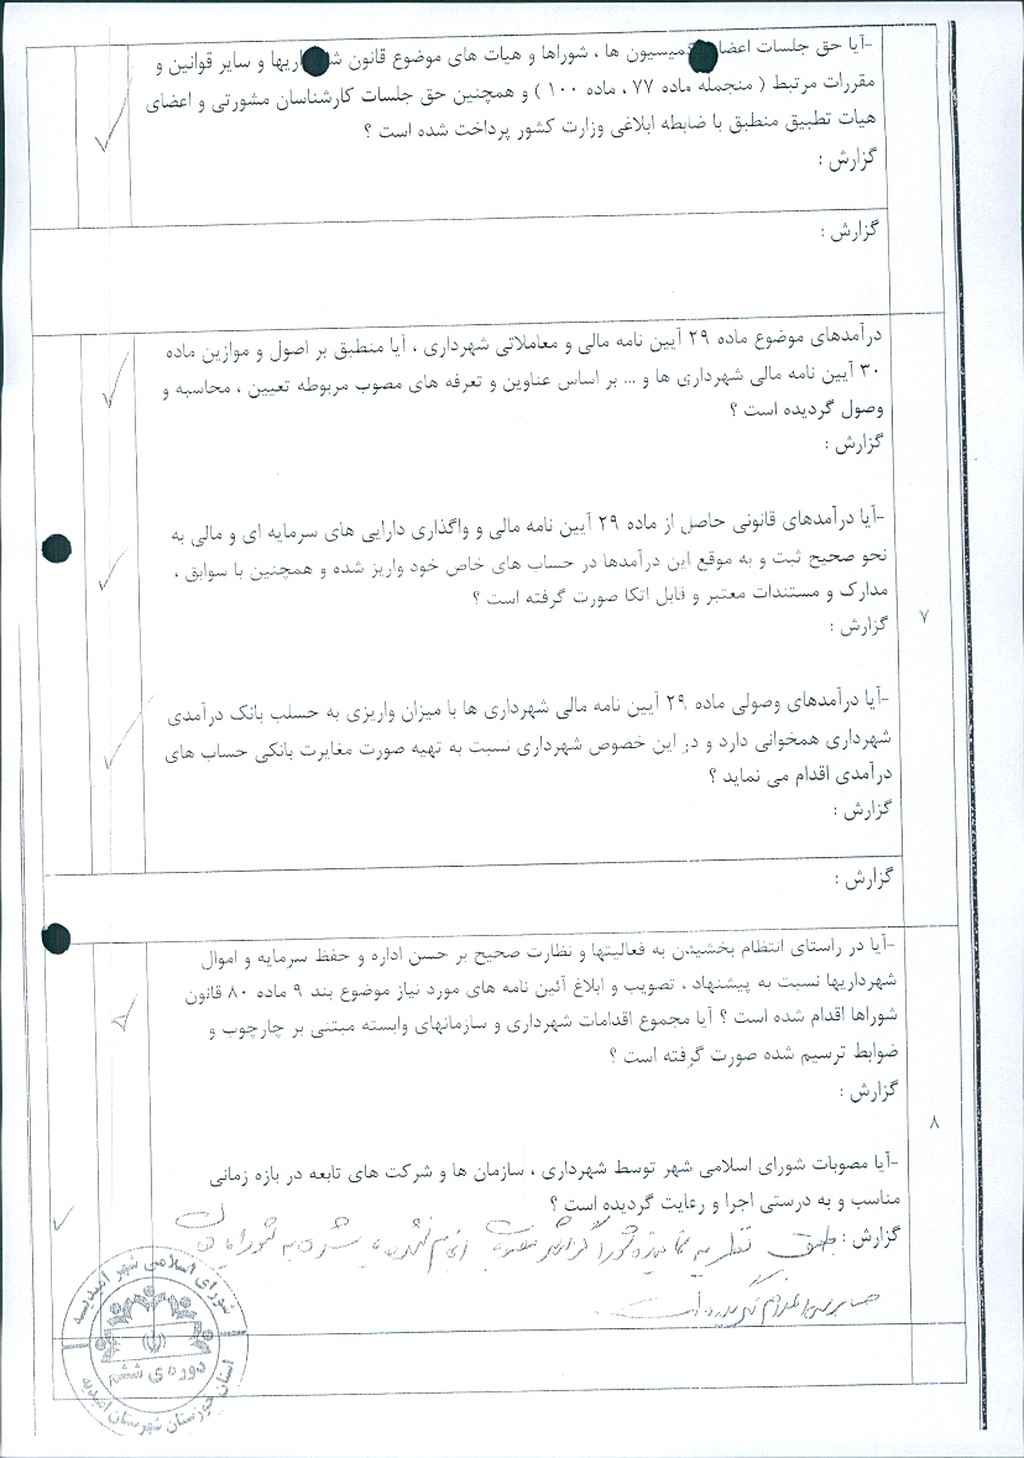 -آیا حق جلسات اعضای کمیسیون ها ، شوراها و هیات های موضوع قانون شهرداریها و سایر قوانین و
مقررات مرتبط ( منجمله ماده ۷۷ ، ماده ۱۰۰ ) و همچنین حق جلسات کارشناسان مشورتی و اعضای
هیات تطبیق منطبق با ضابطه ابلاغی وزارت کشور پرداخت شده است ؟
گزارش :
گزارش :
درآمدهای موضوع ماده ۲۹ آیین نامه مالی و معاملاتی شهرداری ، آیا منطبق بر اصول و موازین ماده
۳۰ آیین نامه مالی شهرداری ها و ... بر اساس عناوین و تعرفه های مصوب مربوطه تعیین ، محاسبه و
وصول گردیده است ؟
گزارش :
-آیا درآمدهای قانونی حاصل از ماده ۲۹ آیین نامه مالی و واگذاری دارایی های سرمایه ای و مالی به
نحو صحیح ثبت و به موقع این درآمدها در حساب های خاص خود واریز شده و همچنین با سوابق ،
مدارک و مستندات معتبر و قابل اتکا صورت گرفته است ؟
۷
گزارش :
-آیا درآمدهای وصولی ماده ۲۹ آیین نامه مالی شهرداری ها با میزان واریزی به حسلب بانک درآمدی
شهرداری همخوانی دارد و در این خصوص شهرداری نسبت به تهیه صورت مغایرت بانکی حساب های
درآمدی اقدام می نماید ؟
گزارش :
گزارش :
-آیا در راستای انتظام بخشیدن به فعالیتها و نظارت صحیح بر حسن اداره و حفظ سرمایه و اموال
شهرداریها نسبت به پیشنهاد ، تصویب و ابلاغ آئین نامه های مورد نیاز موضوع بند ۹ ماده ۸۰ قانون
شوراها اقدام شده است ؟ آیا مجموع اقدامات شهرداری و سازمانهای وابسته مبتنی بر چارچوب و
ضوابط ترسیم شده صورت گرفته است ؟
گزارش :
۸
-آیا مصوبات شورای اسلامی شهر توسط شهرداری ، سازمان ها و شرکت های تابعه در بازه زمانی
مناسب و به درستی اجرا و رعایت گردیده است ؟
گزارش : طبق نظریه نماینده شورا گزارش مصوبات انجام نشده
شورای اسلامی شهر امیدیه
دوره ی ششم
استان خوزستان شهرستان امیدیه